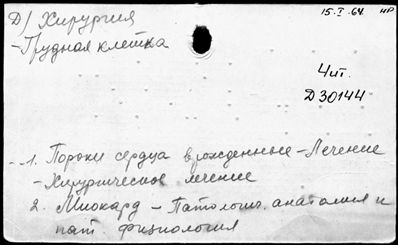 Д) Хирургия
15.I.64. НР
- Грудная клетка
Чит.
Д30144
1. Пороки сердца врожденные - Лечение
- Хирургическое лечение
2. Миокард - Патологич. анатомия и
пат. физиология